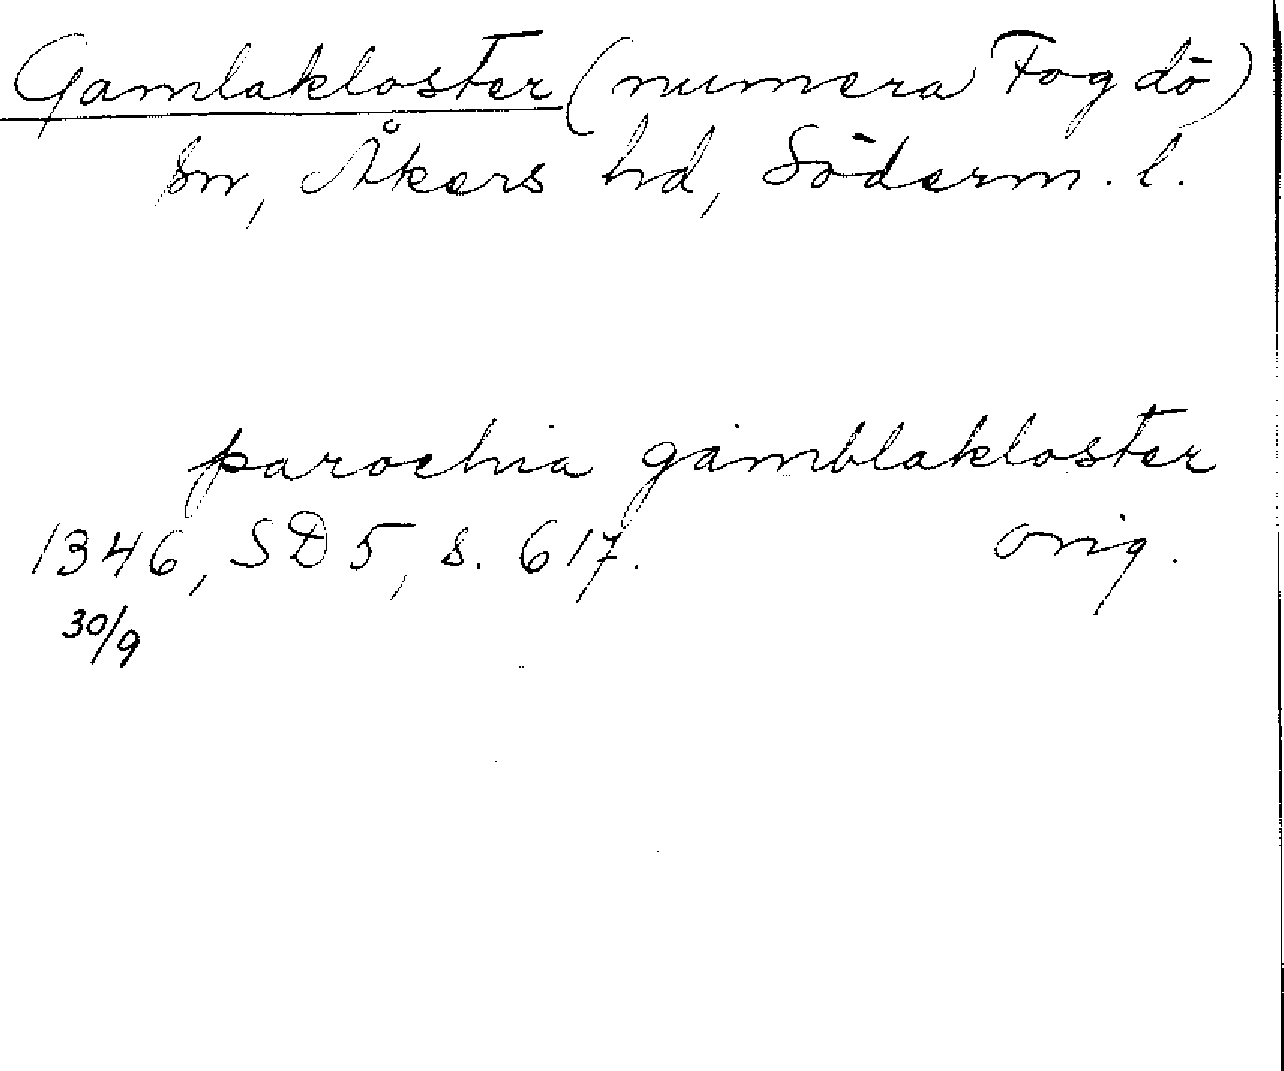 Gamlakloster (numera Fogdö)
sn, Åkers hd, Söderm. l.
parochia gamblakloster
1346, SD 5, s. 617. orig.
30/9